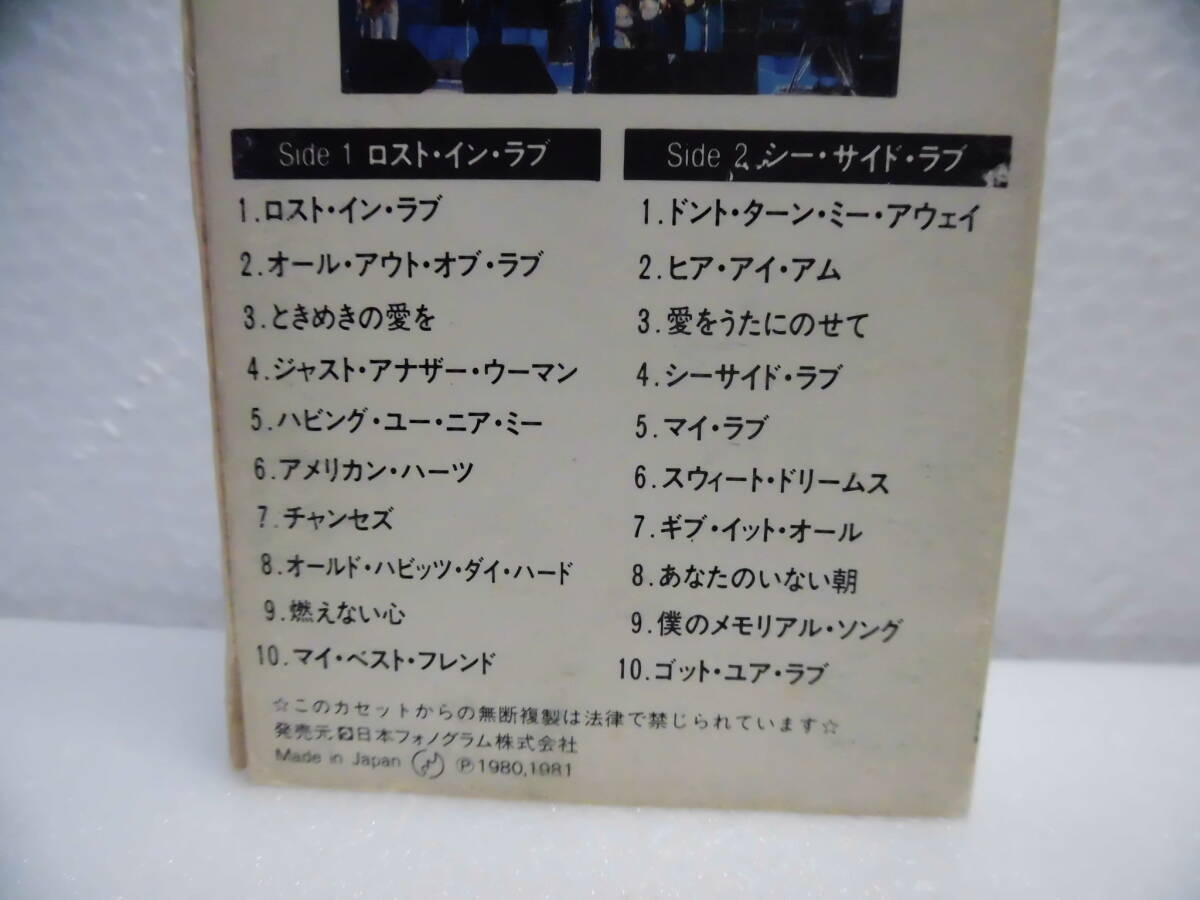 Side 1 ロスト・イン・ラブ
1.ロスト・イン・ラブ
2.オール・アウト・オブ・ラブ
3.ときめきの愛を
4.ジャスト・アナザー・ウーマン
5.ハビング・ユー・ニア・ミー
6.アメリカン・ハーツ
7.チャンセズ
8.オールド・ハビッツ・ダイ・ハード
9.燃えない心
10.マイ・ベスト・フレンド
Side 2 シー・サイド・ラブ
1.ドント・ターン・ミー・アウェイ
2.ヒア・アイ・アム
3.愛をうたにのせて
4.シーサイド・ラブ
5.マイ・ラブ
6.スウィート・ドリームス
7.ギブ・イット・オール
8.あなたのいない朝
9.僕のメモリアル・ソング
10.ゴット・ユア・ラブ
☆このカセットからの無断複製は法律で禁じられています☆
発売元 日本フォノグラム株式会社
Made in Japan Ⓟ1980,1981